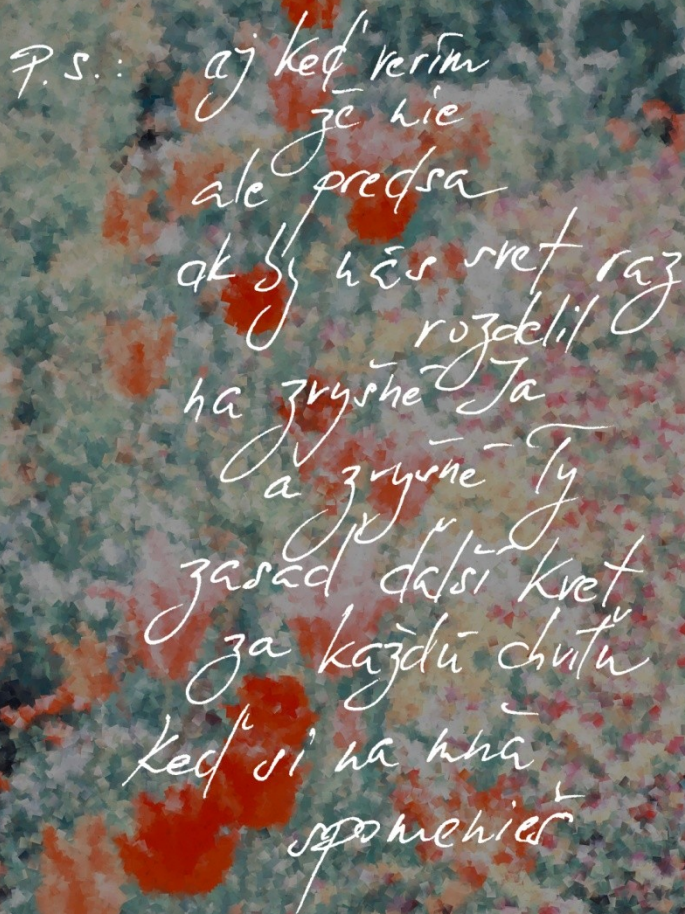 P.S.: aj keď verím
že nie
ale predsa
ak by nás svet raz
rozdelil
na zvyšné Ja
a zvyšné Ty
zasaď ďalší kvet
za každú chvíľu
keď si na mňa
spomenieš